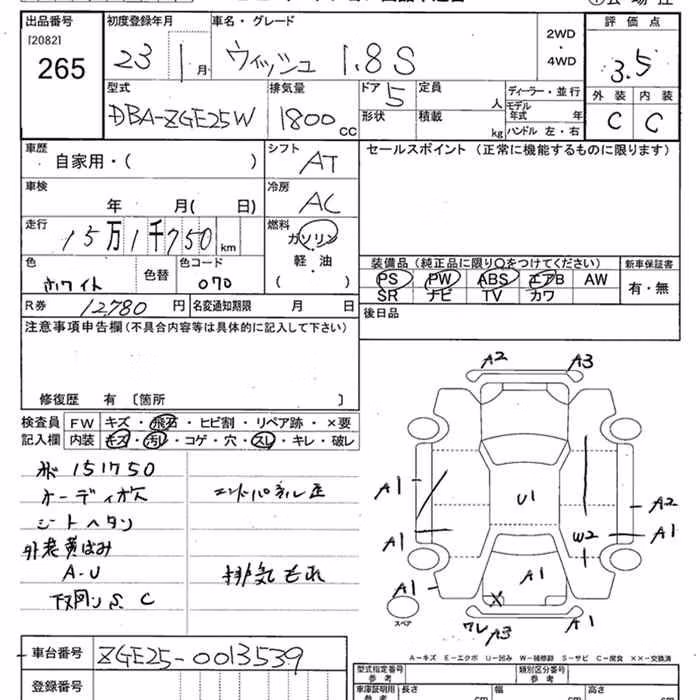 出品番号 初度登録年月 車名・グレード 2WD・4WD 評価点
[2082]
265 23 1月 ウィッシュ 1.8S 3.5
型式 排気量 ドア 5 定員 人 ディーラー・並行 外装 内装
DBA-ZGE25W 1800cc 形状 積載 kg モデル年式 年 C C
ハンドル 左・右
車歴 自家用・( ) シフト AT セールスポイント (正常に機能するものに限ります)
車検 年 月( 日) 冷房 AC
走行 15万1千750km 燃料 ガソリン
軽・油
( )
色 ホワイト 色替 色コード 070
装備品 (純正品に限り○をつけてください) 新車保証書
PS PW ABS エアB AW 有・無
SR ナビ TV カワ
R券 12,780円 名変通知期限 月 日 後日品
注意事項申告欄(不具合内容等は具体的に記入して下さい)
修復歴 有 〔箇所 〕
検査員記入欄 FW キズ・飛石・ヒビ割・リペア跡・×要
内装 キズ・汚レ・コゲ・穴・スレ・キレ・破レ
151750
オーディオ欠
シートヘタリ
外装黄ばみ
A-U
下回り S. C
排気もれ
A2 A3
A1 U1 A2
A1 W2 A1
A1 A1
X
ワレ A3 A1
スペア
A-キズ E-エクボ U-凹み W-補修跡 S-サビ C-腐食 XX-交換済
車台番号 ZGE25-0013539
登録番号
型式指定番号 参考 類別区分番号 参考
車庫証明用 参考 長さ cm 幅 cm 高さ cm